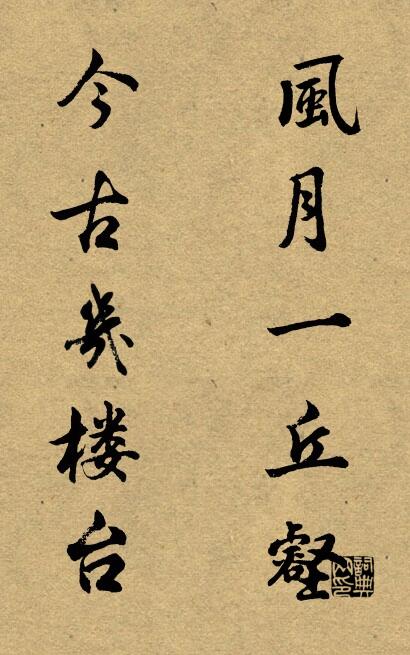 風月一丘壑
今古幾楼台